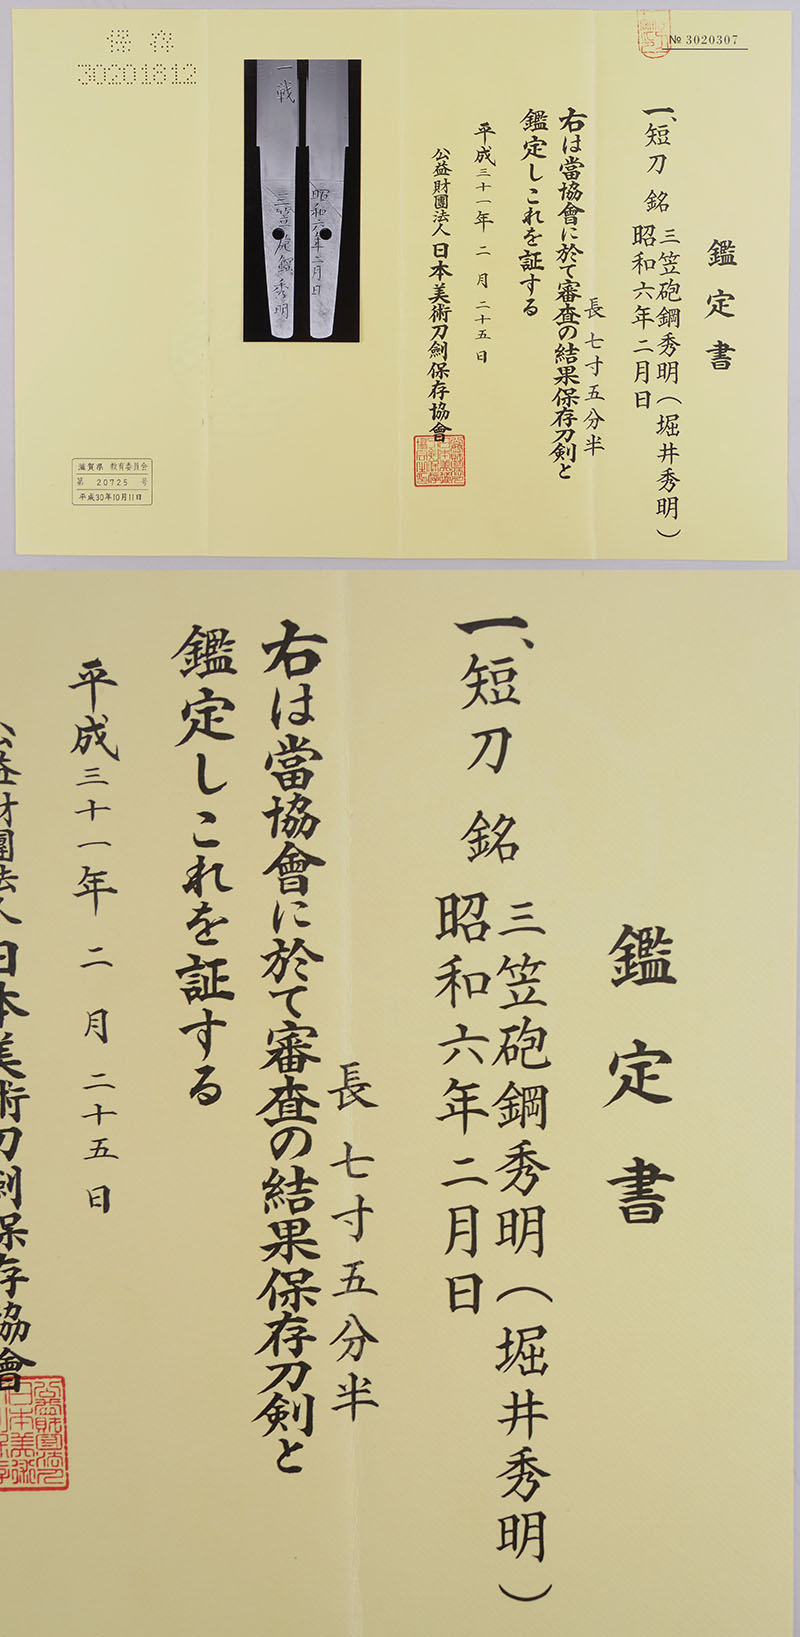 № 3020307
鑑定書
一、短刀 銘 三笠砲鋼秀明(堀井秀明)
昭和六年二月日
長 七寸五分半
右は當協會に於て審査の結果保存刀剣と
鑑定しこれを証する
平成三十一年 二 月 二十五 日
公益財團法人 日本美術刀剣保存協會
一戦
昭和六年二月日
三笠砲鋼秀明
保存
30201812
滋賀県 教育委員会
第 20725 号
平成30年10月11日
鑑定書
一、短刀 銘 三笠砲鋼秀明(堀井秀明)
昭和六年二月日
長 七寸五分半
右は當協會に於て審査の結果保存刀剣と
鑑定しこれを証する
平成三十一年 二 月 二十五 日
公益財團法人 日本美術刀剣保存協會